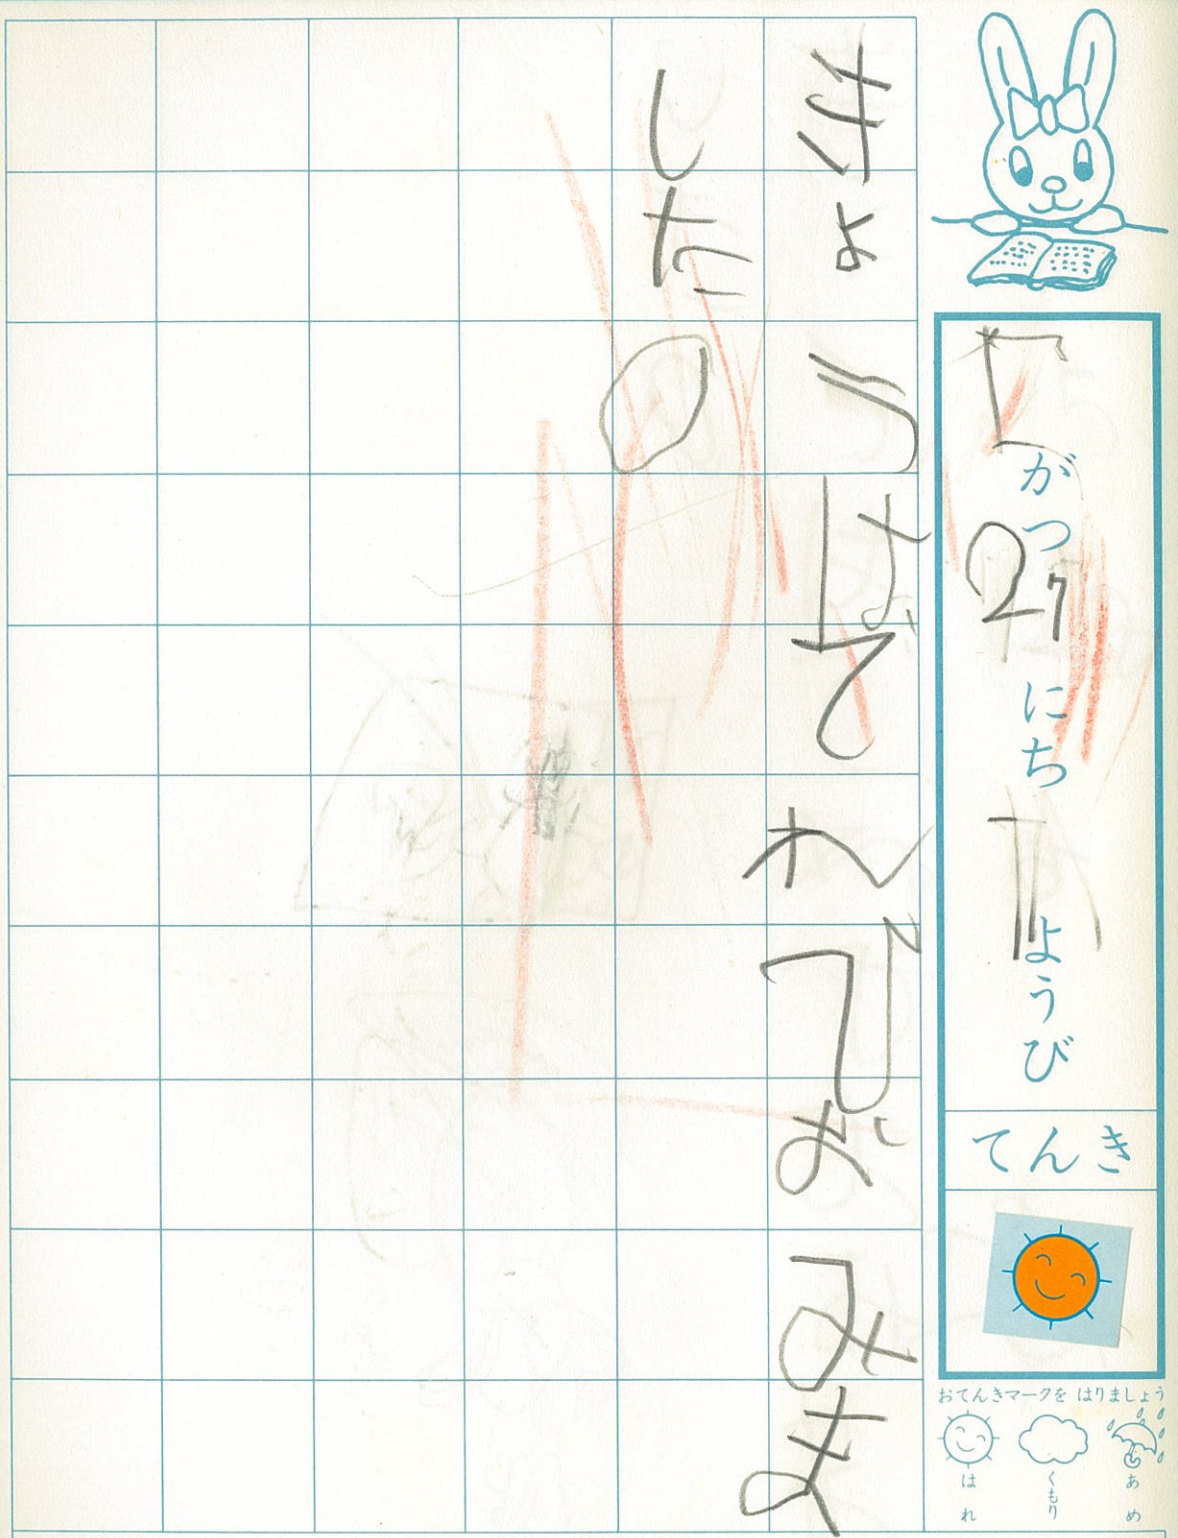 がつ にち ようび
てんき
おてんきマークを はりましょう
はれ
くもり
あめ
きょうはてれびおみま
した。